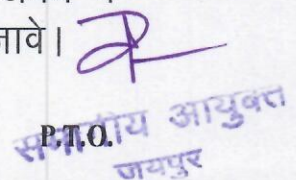 जावे।
P.T.O.
संभागीय आयुक्त
जयपुर